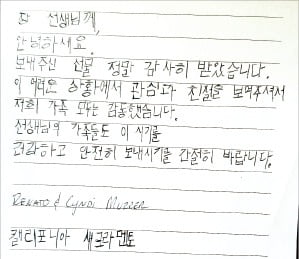 판 선생님께,
안녕하세요.
보내주신 선물 정말 감사히 받았습니다.
이 어려운 상황에서 관심과 친절을 보여주셔서
저희 가족 모두는 감동했습니다.
선생님의 가족들도 이 시기를
건강하고 안전히 보내시기를 간절히 바랍니다.
RENATO & CYNDI
캘리포니아 새크라멘토